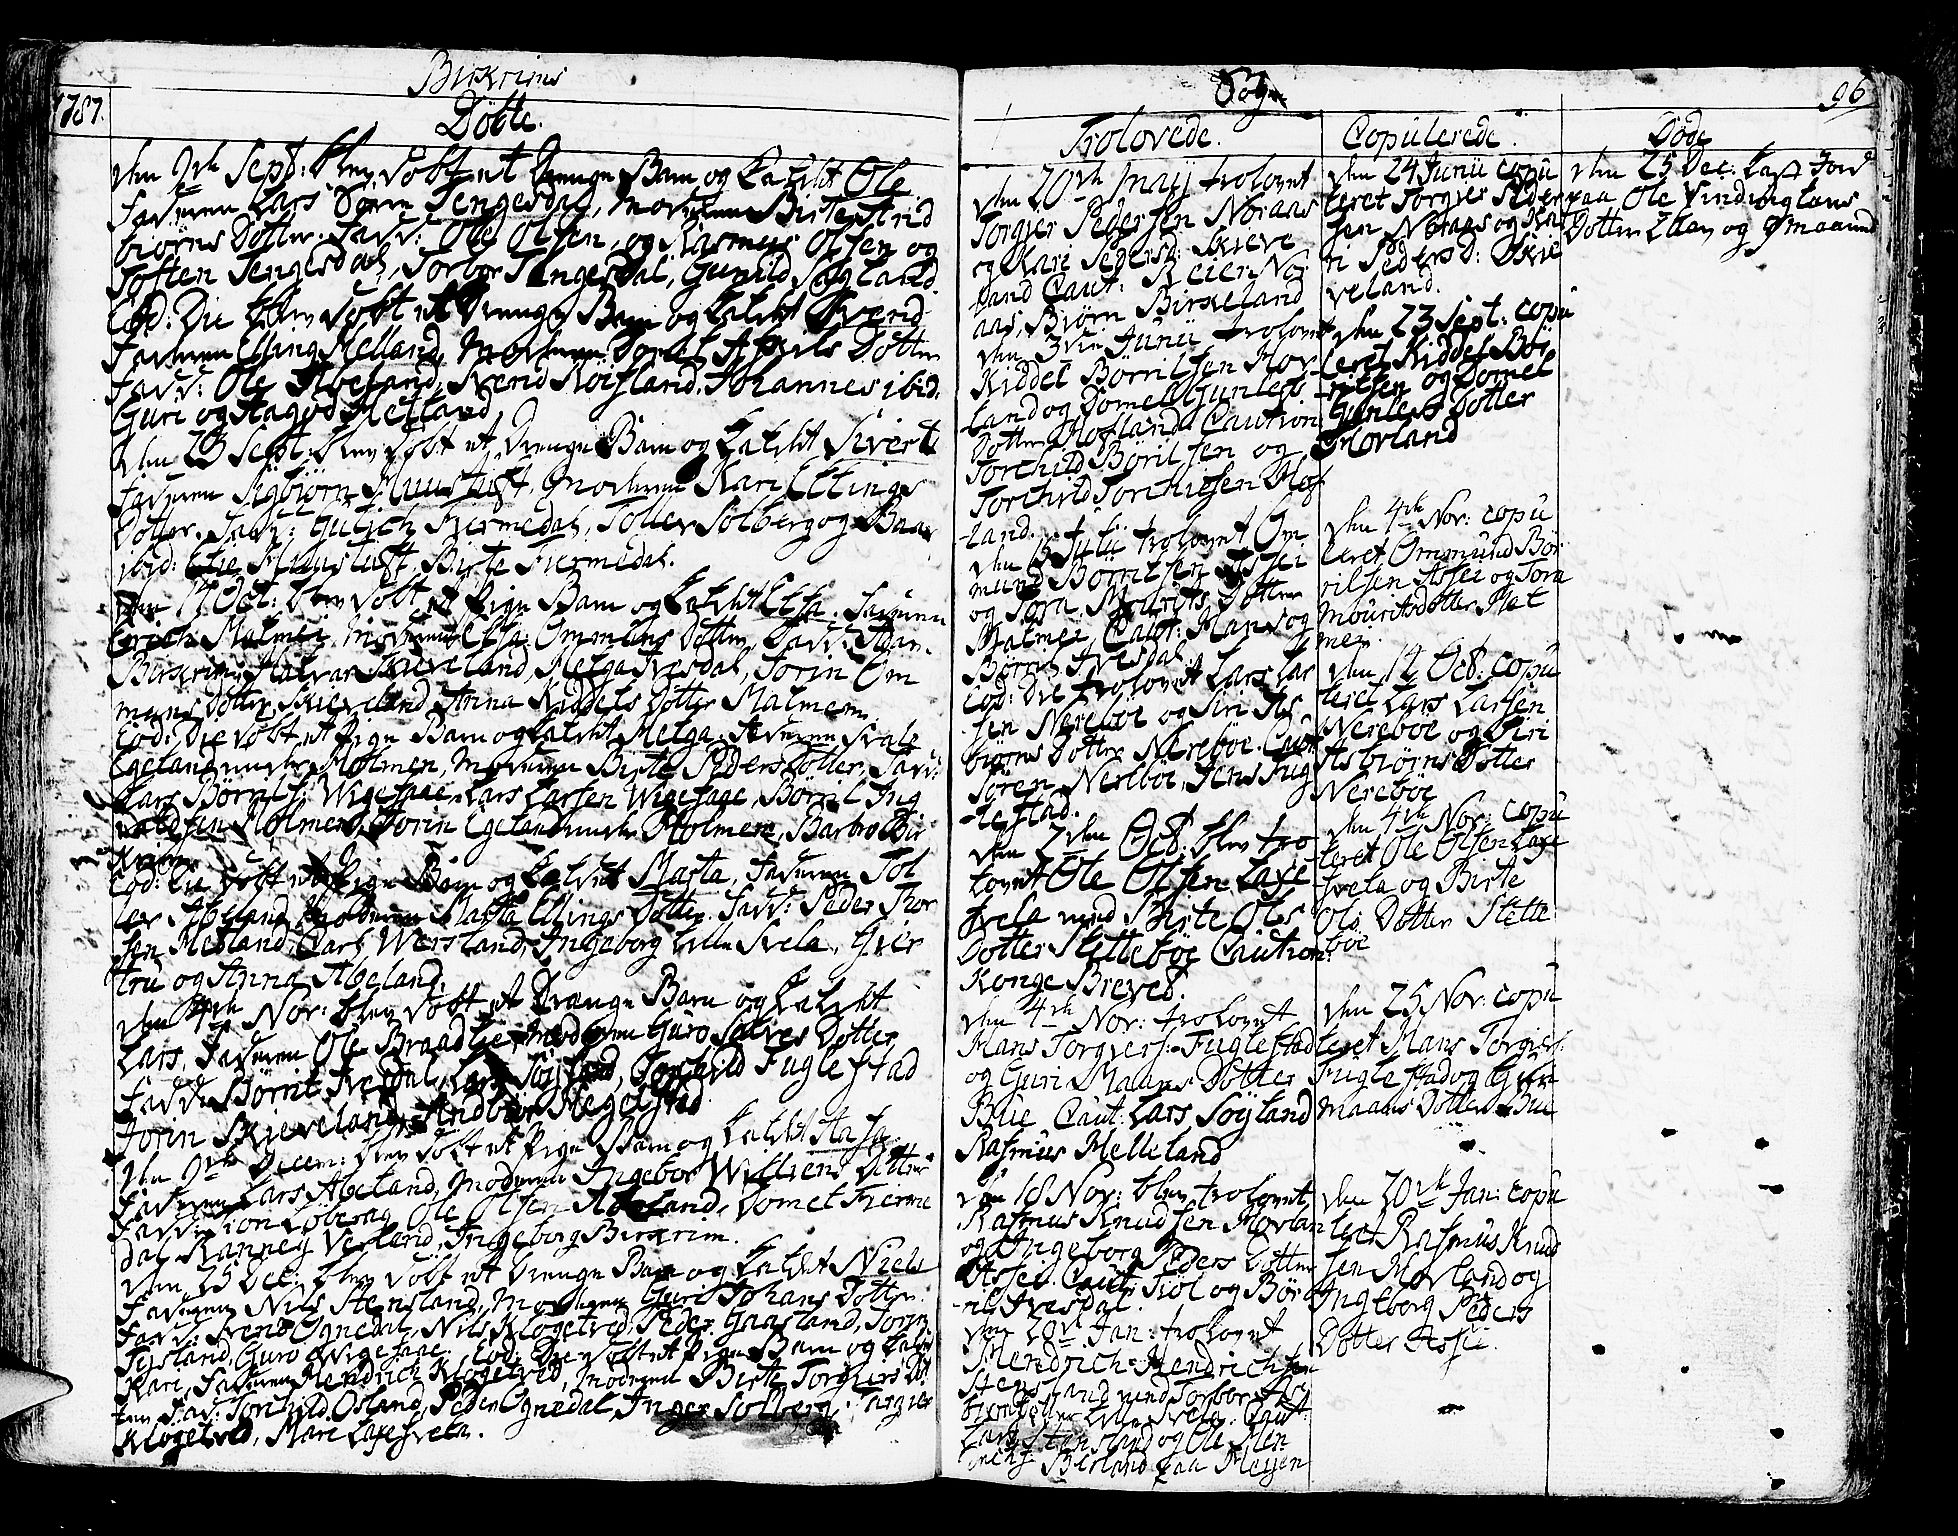 Birkrims
Sogn
96
1787.
Döbte.
den 9de Sept: blev döbt et Drenge Barn og kaldet Ole
Faderen Lars Tengesdal, Moderen Birte Asbiörns
Dotter. Fadd: Ole Olsen, og Rasmus Olsen og
Toften Tengesdal, Torbor Tengesdal, Gunild Sagland
Eod: Die blev döbt et Drenge Barn og kaldet Svend
Faderen Elling Melland, Moderen Dorte Dotter
Fadd: Ole Abeland, Svend Röisland, Johannes ibid.
Guri og Aagod Metland
den 23 Sept: blev döbt et Drenge Barn og kaldet Sivert
Faderen Sigbiörn, Moderen Kari Ellings
Dotter. Fadd: Fiermedal, Toller Solberg og
ibid: Elie, Birte Fiermedal.
Den 14 Oct: blev döbt et Pige Barn og kaldet Elsa. Faderen
Erich Malmei, Moderen Elsa Ommuns Dotter, Fadd:
Birkrim, Halvar Skieveland, Helga Ivesdal, Torin Om
muns Dotter Skieveland, Anna Kiddels Dotter Malmem.
Eod: Die döbt et Pige Barn og kaldet Helga. Faderen
Egeland Holmen, Moderen Birte Peders Dotter, Fadd:
Lars Börrils: Wigesaae, Lars Larsen Wigesaae, Börril Ing
valdsen Holmen, Torin Egeland Holmen, Barbro Bir
krim
Eod: Die döbt et Pige Barn og kaldet Marta, Faderen Tol
lev Abeland, Moderen Marta Ellings Dotter. Fadd: Peder Thor
sen Metland, Carl Wersland, Ingeborg Lille Svela, Gier
tru og Anna Abeland.
den 4de Nov: blev döbt et Drenge Barn og kaldet
Lars, Faderen Ole Braadlie, Moderen Guro Salves Dotter
Fadd: Börril Ivesdal, Lars Söyland, Torkild Fuglestad
Torin Skieveland, Andbor Hegelstad
den 9de Decem: blev döbt et Pige Barn og kaldet Aasa.
Faderen Lars Abeland, Moderen Ingebor Willums Dotter
Fadd: Ole Olsen Hovland, Tomet Fierme
dal, Ranneg Verland, Ingeborg Birkrim.
den 25 Dec: blev döbt et Drenge Barn og kaldet Niels
Faderen Nils Stensland, Moderen Guri Johans Dotter.
Fadd: Svend Ognedal, Nils Klogetved, Peder Gaasland, Torin
Guro Wigesaae. Eod: Die döbt et Pige Barn og kaldet
Kari, Faderen Hendrich Klogetved, Moderen Birte Torgiers Dot
ter, Fad: Torchild Osland, Peder Ognedal, Inger Solberg, Torgier
Klogetved, Mari Laxesvela.
Trolovede.
den 20de Maij trolovet
Torgier Pedersen Noraas
og Kari Pedersd: Skieve
land Caut: Reier Nor
aas, Biörn Birkeland
den 3die Junii trolovet
Kiddel Börrilsen Hov
land og Tomel Gunlegs
Dotter Hofland Caution
Torchild Börilsen og
Torchild Torchielsen Hof
-land.
den 15 Julii trolovet Om
mund Börrilsen Assei
og Tora Mourits Dotter
Malmei Caut: Mans og
Börril Ivesdal.
Eod: Die trolovet Lars Lar
sen Nereböe og Siri As
biörns Dotter Nereböe. Caut
Sören Nereböe, Jens Fug
-lestad.
den 2den Oct: blev tro
lovet Ole Olsen Laxe
svela med Birte Ols
Dotter Sletteböe Caution
Konge Brevet.
den 4de Nov: trolovet
Mans Torgiers: Fuglestad
og Guri Maans Dotter
Bue Caut: Lars Söyland
Rasmus Melleland
den 18 Nov: blev trolovet
Rasmus Knudsen Hovlan
og Ingeborg Peders Dotter
Assei. Caut: Tiöl og Bör
-ril Ivesdal.
den 20de Jan: trolovet
Hendrich Hendrichsen
Stensland med Torbor As
biörns Dotter Lille Svela. Caut:
Lars Stensland og Ole
Berland paa Heyen
Copulerede.
den 24 Junii copu
leret Torgier Peder
sen Noraas og Ka
ri Pedersd: Skie
veland.
den 23 Sept: copu
leret Kiddel Bör
rilsen og Tomel
Gunlegs Dotter
Hovland
den 4de Nov: copu
leret Ommund Bör
rilsen Assei og Tora
Mouritsdotter Mal
mei.
den 14 Oct: copu
leret Lars Larsen
Nereböe og Siri
Asbiörns Dotter
Nereböe
den 4de Nov: copu
leret Ole Olsen Laxe
svela og Birte
Ols Dotter Slette
böe
den 25 Nov: copu
leret Mans Torgiers:
Fuglestad og Guri
Maans Dotter Bue
den 20de Jan: copu
leret Rasmus Knud
sen Hovland og
Ingeborg Peders
Dotter Assei.
Döde
den 25 Dec: kast Jord
paa Ole Vindinglans
Dotter 2 Uger og Ømaaned